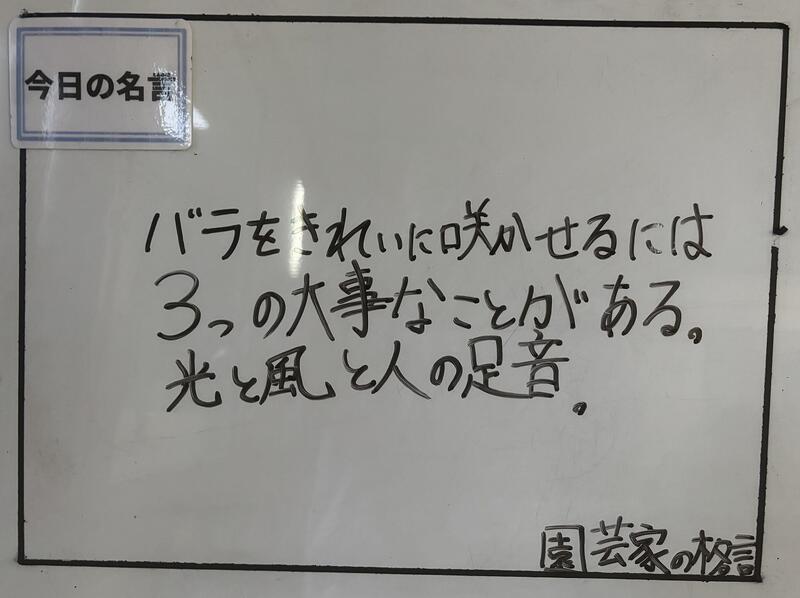 今日の名言
バラをきれいに咲かせるには
3つの大事なことがある。
光と風と人の足音。
園芸家の格言